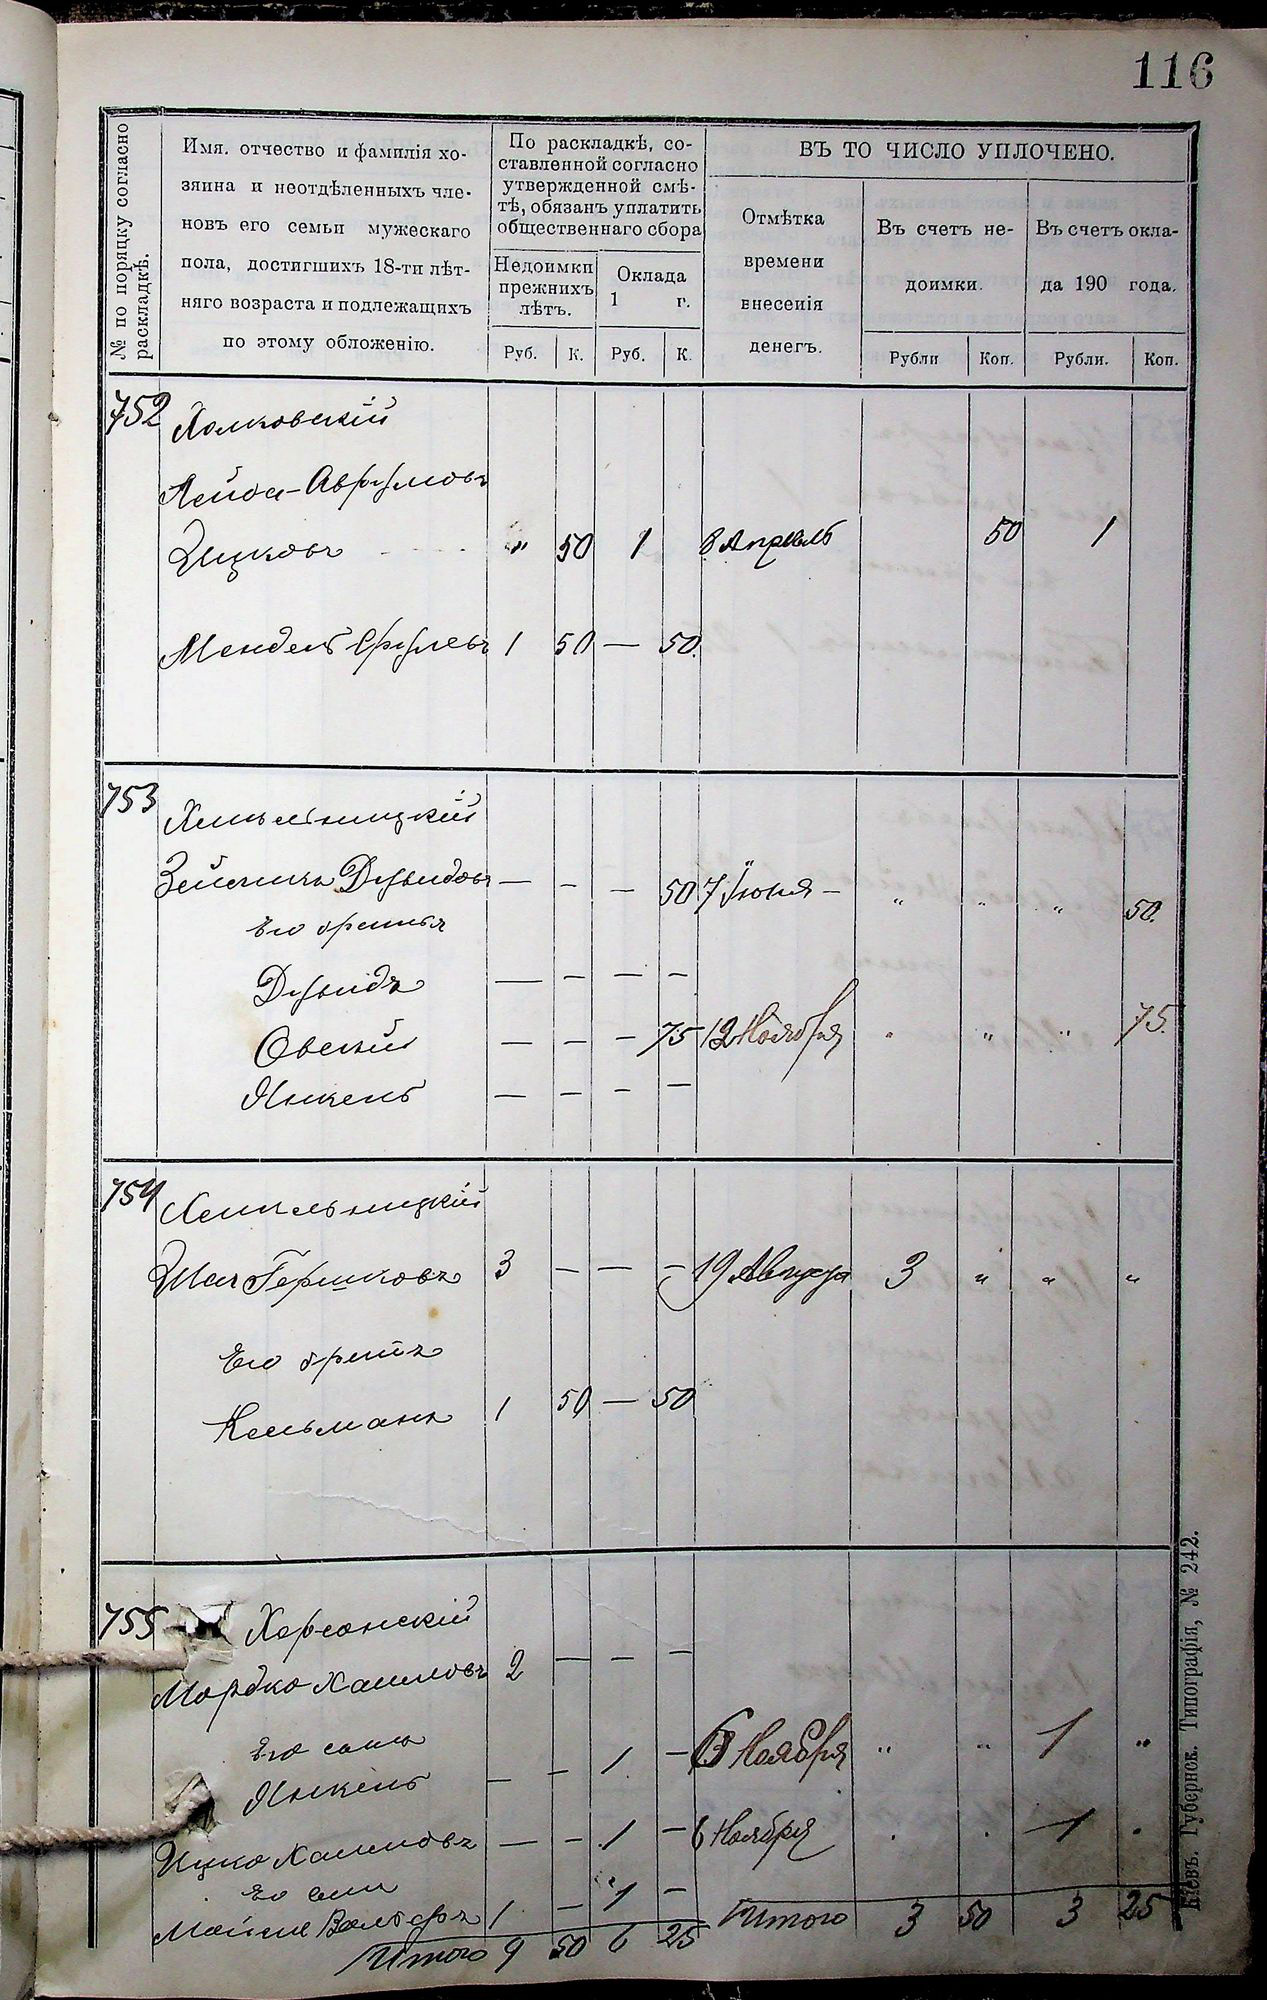 116
№ по порядку согласно
раскладкѣ.
Имя, отчество и фамилія хо-
зяина и неотдѣленныхъ чле-
новъ его семьи мужескаго
пола, достигшихъ 18-ти лѣт-
няго возраста и подлежащихъ
по этому обложенію.
По раскладкѣ, со-
ставленной согласно
утвержденной смѣ-
тѣ, обязанъ уплатить
общественнаго сбора
Недоимки
прежнихъ
лѣтъ.
Оклада
1 г.
Руб. К. Руб. К.
ВЪ ТО ЧИСЛО УПЛОЧЕНО.
Отмѣтка
времени
внесенія
денегъ.
Въ счетъ не-
доимки.
Въ счетъ окла-
да 190 года.
Рубли Коп. Рубли. Коп.
752 Холковскій
Аврумовъ
Ицковъ " 50 1 8 Апрѣль 50 1
Мендель Срулевъ 1 50 — 50.
753 Хмельницкій
Дувидовъ — - — 50 7 Іюня — " " " 50.
Его братья
Дувидъ — — — —
Овсей — — — 75 12 Ноября " " " 75.
Янкель — — - —
754 Хмельницкій
Гершковъ 3 — — — 19 Августа 3 " " "
Его братъ
Кельманъ 1 50 — 50
755 Херсонскій
Мордко Хаимовъ 2 — — —
Его сынъ
Янкель — — 1 — 13 Ноября " " 1 "
Ицко Хаимовъ — - 1 — 6 Ноября . . 1 .
Его сынъ
Мойше 1 — 1 —
Итого 3 50 3 25
Итого 9 50 6 25
Кіевъ. Губернск. Типографія, № 242.